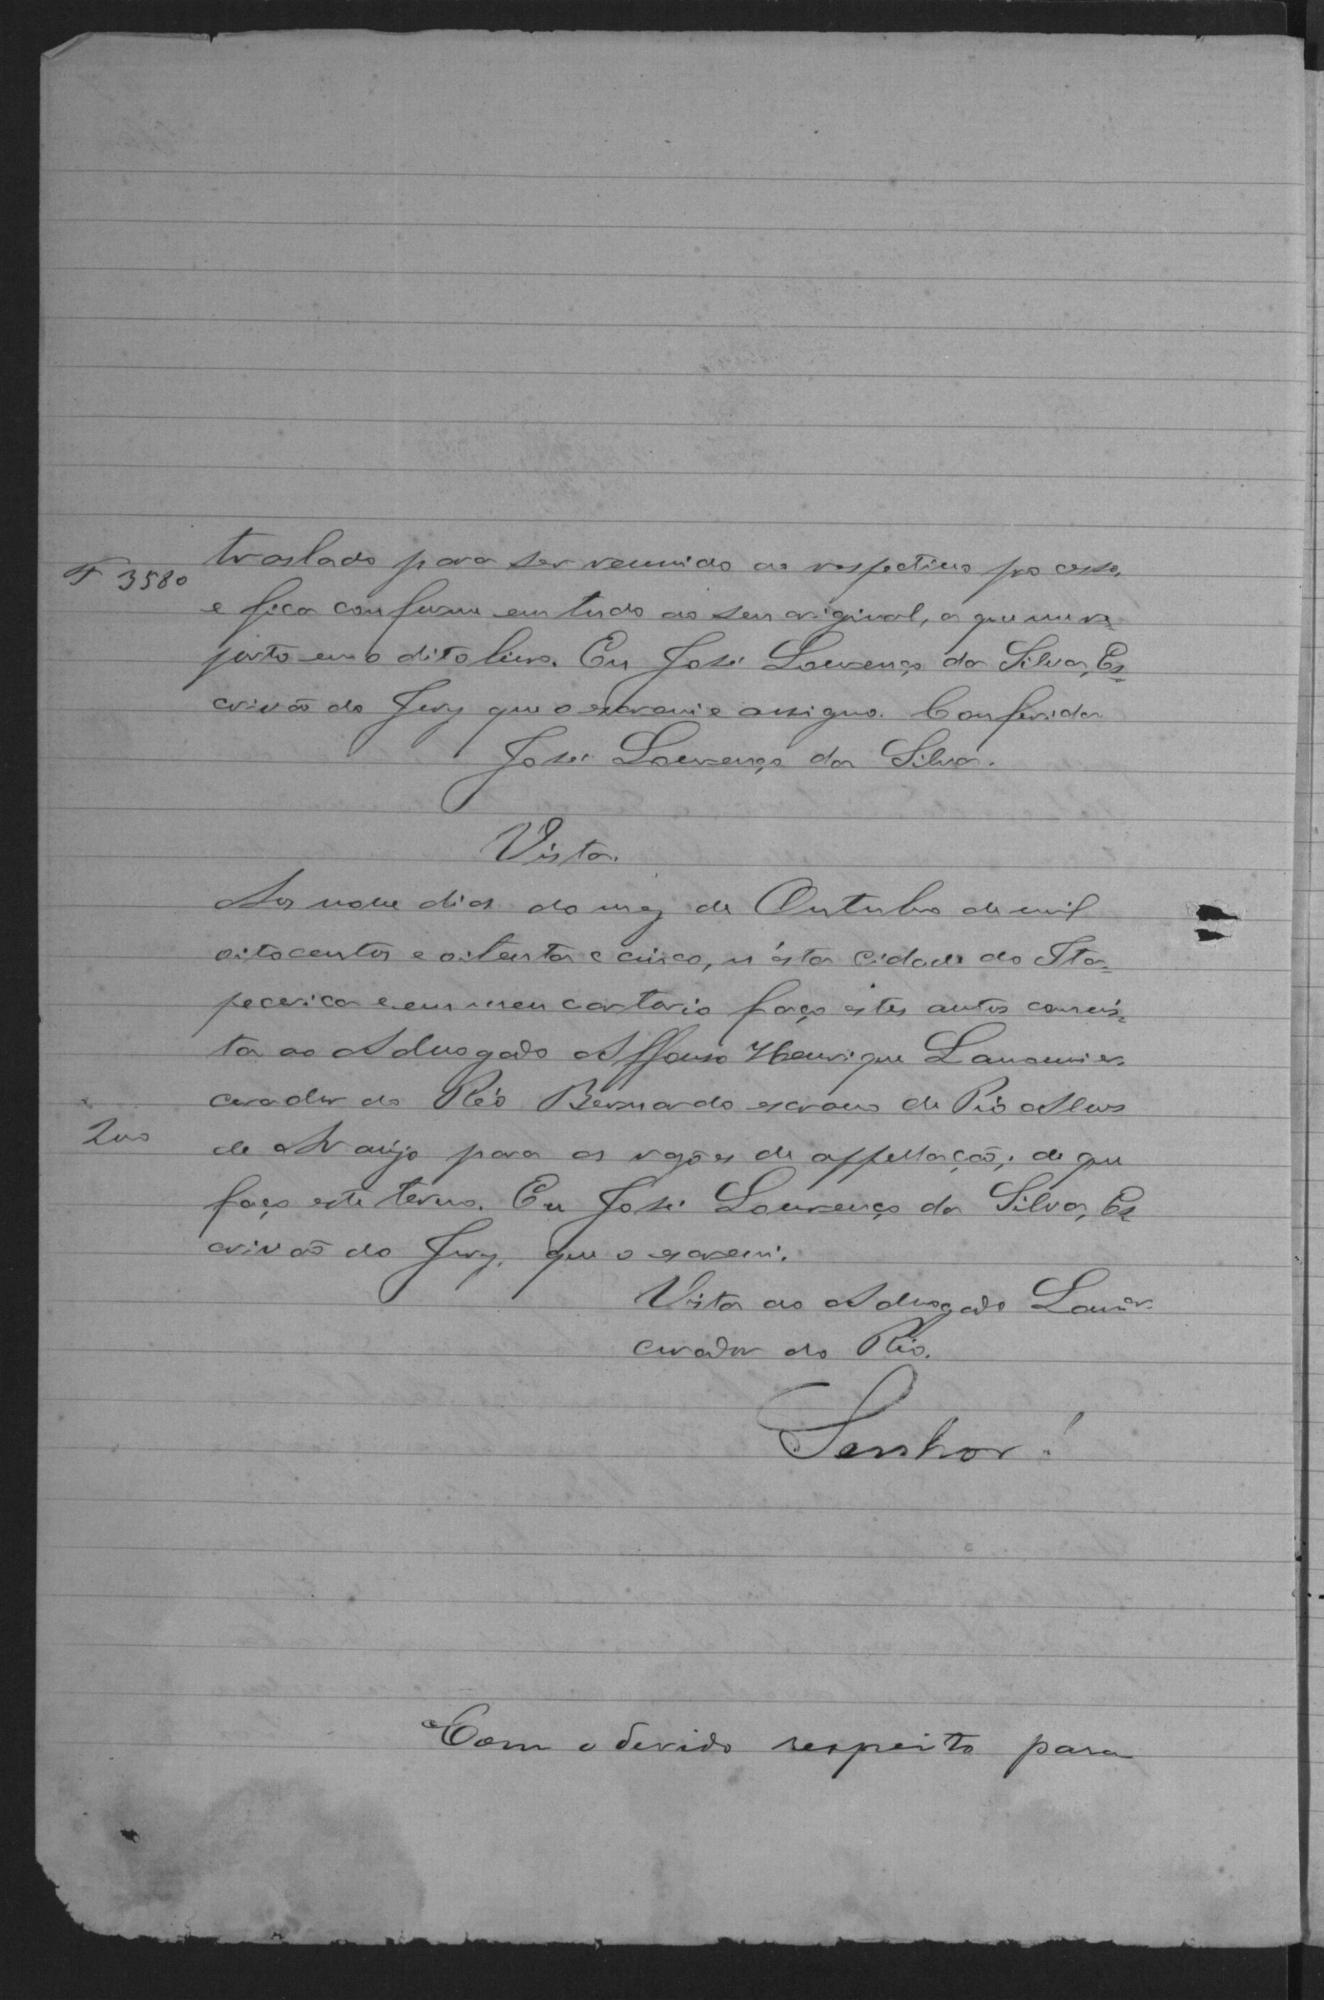 traslado para ser reunido ao respectivo processo,
T 3580
e fica conforme em tudo ao seu original, a que me re=
porto em o dito livro. Eu José Lourenço da Silva, Es=
crivão do Jury que o escrevi e assigno. Conferida
José Lourenço da Silva.
Vista.
Aos nove dias do mez de Outubro de mil
oitocentos e oitenta e cinco, n'ésta cidade do Ita=
pecerica e em meu cartorio faço estes autos com vis=
ta ao Advogado Affonso Henrique
curador do Réo Bernardo escravo de Pio Alves
200
de Araujo para as rasões de appellação; de que
faço este termo. Eu José Lourenço da Silva, Es=
crivão do Jury, que o escrevi.
Vista ao Advogado
curador do Réo.
Senhor!
Com o devido respeito para